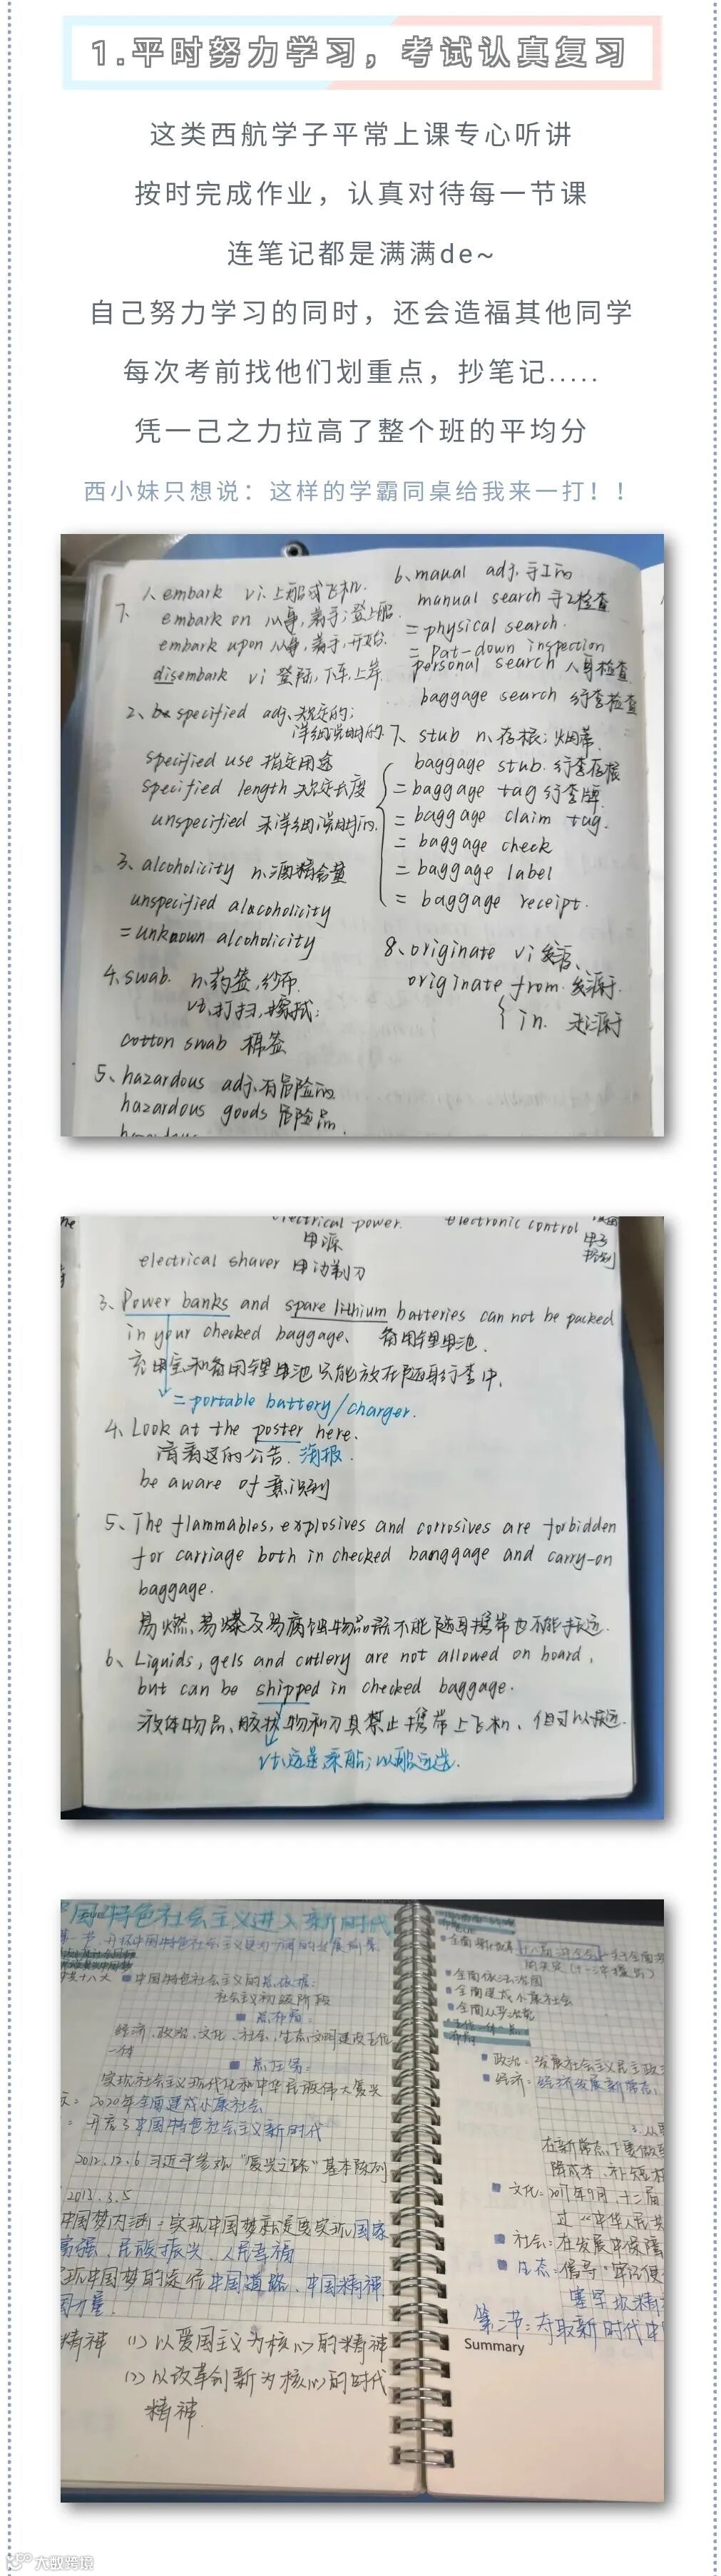 1.平时努力学习，考试认真复习
这类西航学子平常上课专心听讲
按时完成作业，认真对待每一节课
连笔记都是满满de~
自己努力学习的同时，还会造福其他同学
每次考前找他们划重点，抄笔记.....
凭一己之力拉高了整个班的平均分
西小妹只想说：这样的学霸同桌给我来一打！！
7、
1、embark vi.上船或飞机.
embark on 从事,着手;登上船.
embark upon 从事,着手,开始.
disembark vi 登陆,下车,上岸
2、be specified adj.规定的;
详细说明的.
specified use 指定用途
specified length 规定长度
unspecified 未详细说明的.
3、alcoholicity n.酒精含量
unspecified alacoholicity
=unknown alcoholicity
4、swab. n.药签,纱布.
vt.打扫,擦拭;
cotton swab 棉签
5、hazardous adj.有危险的
hazardous goods 危险品.
6、maual adj.手工的
manual search 手工检查
=physical search.
= Pat-down inspection
personal search 人身检查
baggage search 行李检查
7、stub n.存根;烟蒂.
baggage stub. 行李存根
=baggage tag 行李牌.
= baggage claim tag.
= baggage check
= baggage label
= baggage receipt.
8、originate vi 发源、
originate from. 发源于.
in. 来源于
electrical power. electronic control
电源 电子
控制
electrical shaver 电动剃刀
3、Power banks and spare lithium batteries can not be packed
in your checked baggage、 备用锂电池.
充电宝和备用锂电池只能放在随身行李中.
=portable battery/charger.
4、Look at the poster here.
请看这的公告. 海报.
be aware of 意识到
5、The flammables, explosives and corrosives are forbidden
for carriage both in checked banggage and carry-on
baggage.
易燃、易爆及易腐蚀物品既不能随身携带也不能托运.
6、Liquids, gels and cutlery are not allowed on board,
but can be shipped in checked baggage.
液体物品、胶状物和刀具禁止携带上飞机、但可以托运.
vt.运送,乘船;以船运送.
中国特色社会主义进入新时代
中国特色社会主义的总依据:
社会主义初级阶段
总布局:
经济、政治、文化、社会、生态文明建设五位
一体
总任务:
实现社会主义现代化和中华民族伟大复兴
2020年全面建成小康社会
开启了中国特色社会主义新时代
2012.12.6 习近平参观"复兴之路"基本陈列
2013.3.5
中国梦内涵:实现中国梦就是要实现国家
富强、民族振兴、人民幸福
实现中国梦的途径中国道路、中国精神
精神 (1)以爱国主义为核心的精神
(2)以改革创新为核心的时代
精神.
全面依法治国
全面建成小康社会
全面从严治党
政治:发展社会主义民主政
经济:经济发展新常态,
在新常态下要做
降成本、补短
文化:2017年9月,十二届
过《中华人民共
社会:在发展中保障
生态:倡导
塞罕坝精
第二节:夺取新时代中
Summary
大数跨境